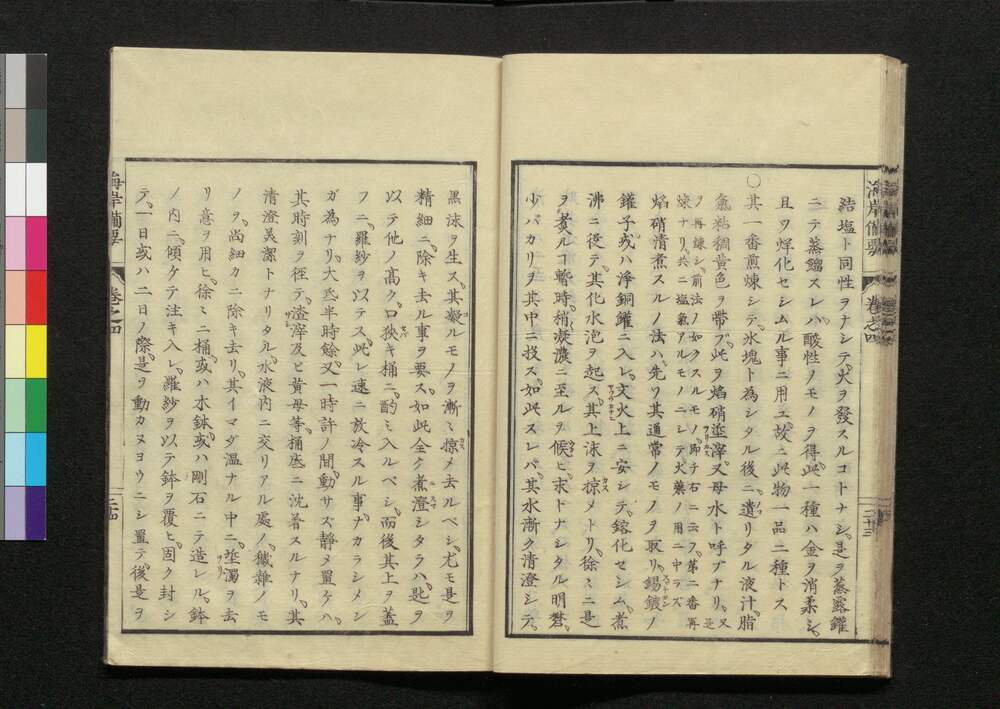 海岸備要
卷之四
二十三
結塩ト同性ヲナシテ火ヲ發スルコトナシ是ヲ蒸露鑵
ニテ蒸餾スレバ酸性ノモノヲ得此一種ハ金ヲ消柔シ
且ツ烊化セシムル事ニ用ユ故ニ此物一品二種トス
○其一番煎煉シテ氷塊ト為シタル後ニ遺リタル液汁脂
氣粘稠黄色ヲ帶ブ此ヲ焰硝埊滓又母水ト呼ブナリ又是
ノ再煉シ前法ノ如クスルモノ即チ石ニ云フ第二番再
煉ナリ共ニ塩氣アルモノニシテ火藥ノ用ニ中ラズ
焰硝清煮スルノ法ハ先ツ其通常ノモノヲ取リ錫鍍ノ
鑵子或ハ淨銅鑵ニ入レ文火上ニ安シテ鎔化セシム煮
沸ニ從テ其化水泡ヲ起ス其上沫ヲ掠メトリ徐々ニ是
ヲ煑ルコ暫時稍凝濃ニ至ルヲ候ヒ末トナシタル明礬
少バカリヲ其中ニ投ス如此スレバ其水漸ク清澄シテ
黒沫ヲ生ス其凝ルモノヲ漸々掠メ去ルベシ尤モ是ヲ
精細ニ除キ去ル事ヲ要ス如此全ク煮澄シタラハ匙ヲ
以テ他ノ高ク口狹キ桶ニ酌ミ入ルベシ而後其上ヲ蓋
フニ羅紗ヲ以テス此レ速ニ放冷スル事ナカラシメン
ガ為ナリ大氐半時餘又一時許ノ間動サズ靜メ置ケハ
其時刻ヲ徑テ渣滓及ヒ黄母等桶底ニ沈着スルナリ其
清澄美潔トナリタル水液内ニ交リアル處ノ穢雜ノモ
ノヲ尚細カニ除キ去リ其イマダ温ナル中ニ埊濁ヲ去
リ意ヲ用ヒ徐々ニ桶或ハ木鉢或ハ剛石ニテ造レル鉢
ノ内ニ傾ケテ注キ入レ羅紗ヲ以テ鉢ヲ覆ヒ固ク封シ
テ一日或ハ二日ノ際是ヲ動カヌヨウニシ置テ後是ヲ
海岸備要
卷之四